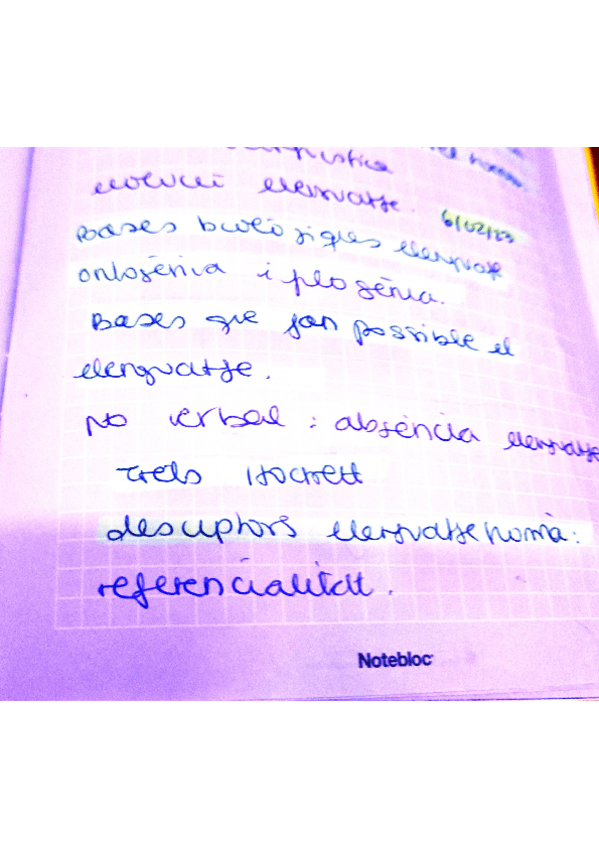 lingüística
evolució llenguatge. 6/02/23
Bases biològiques llenguatge
ontogènia i filogènia.
Bases que fan possible el
llenguatge.
No verbal : absència llenguatge
Trets Hockett
descriptors llenguatge humà:
referencialitat.
Notebloc